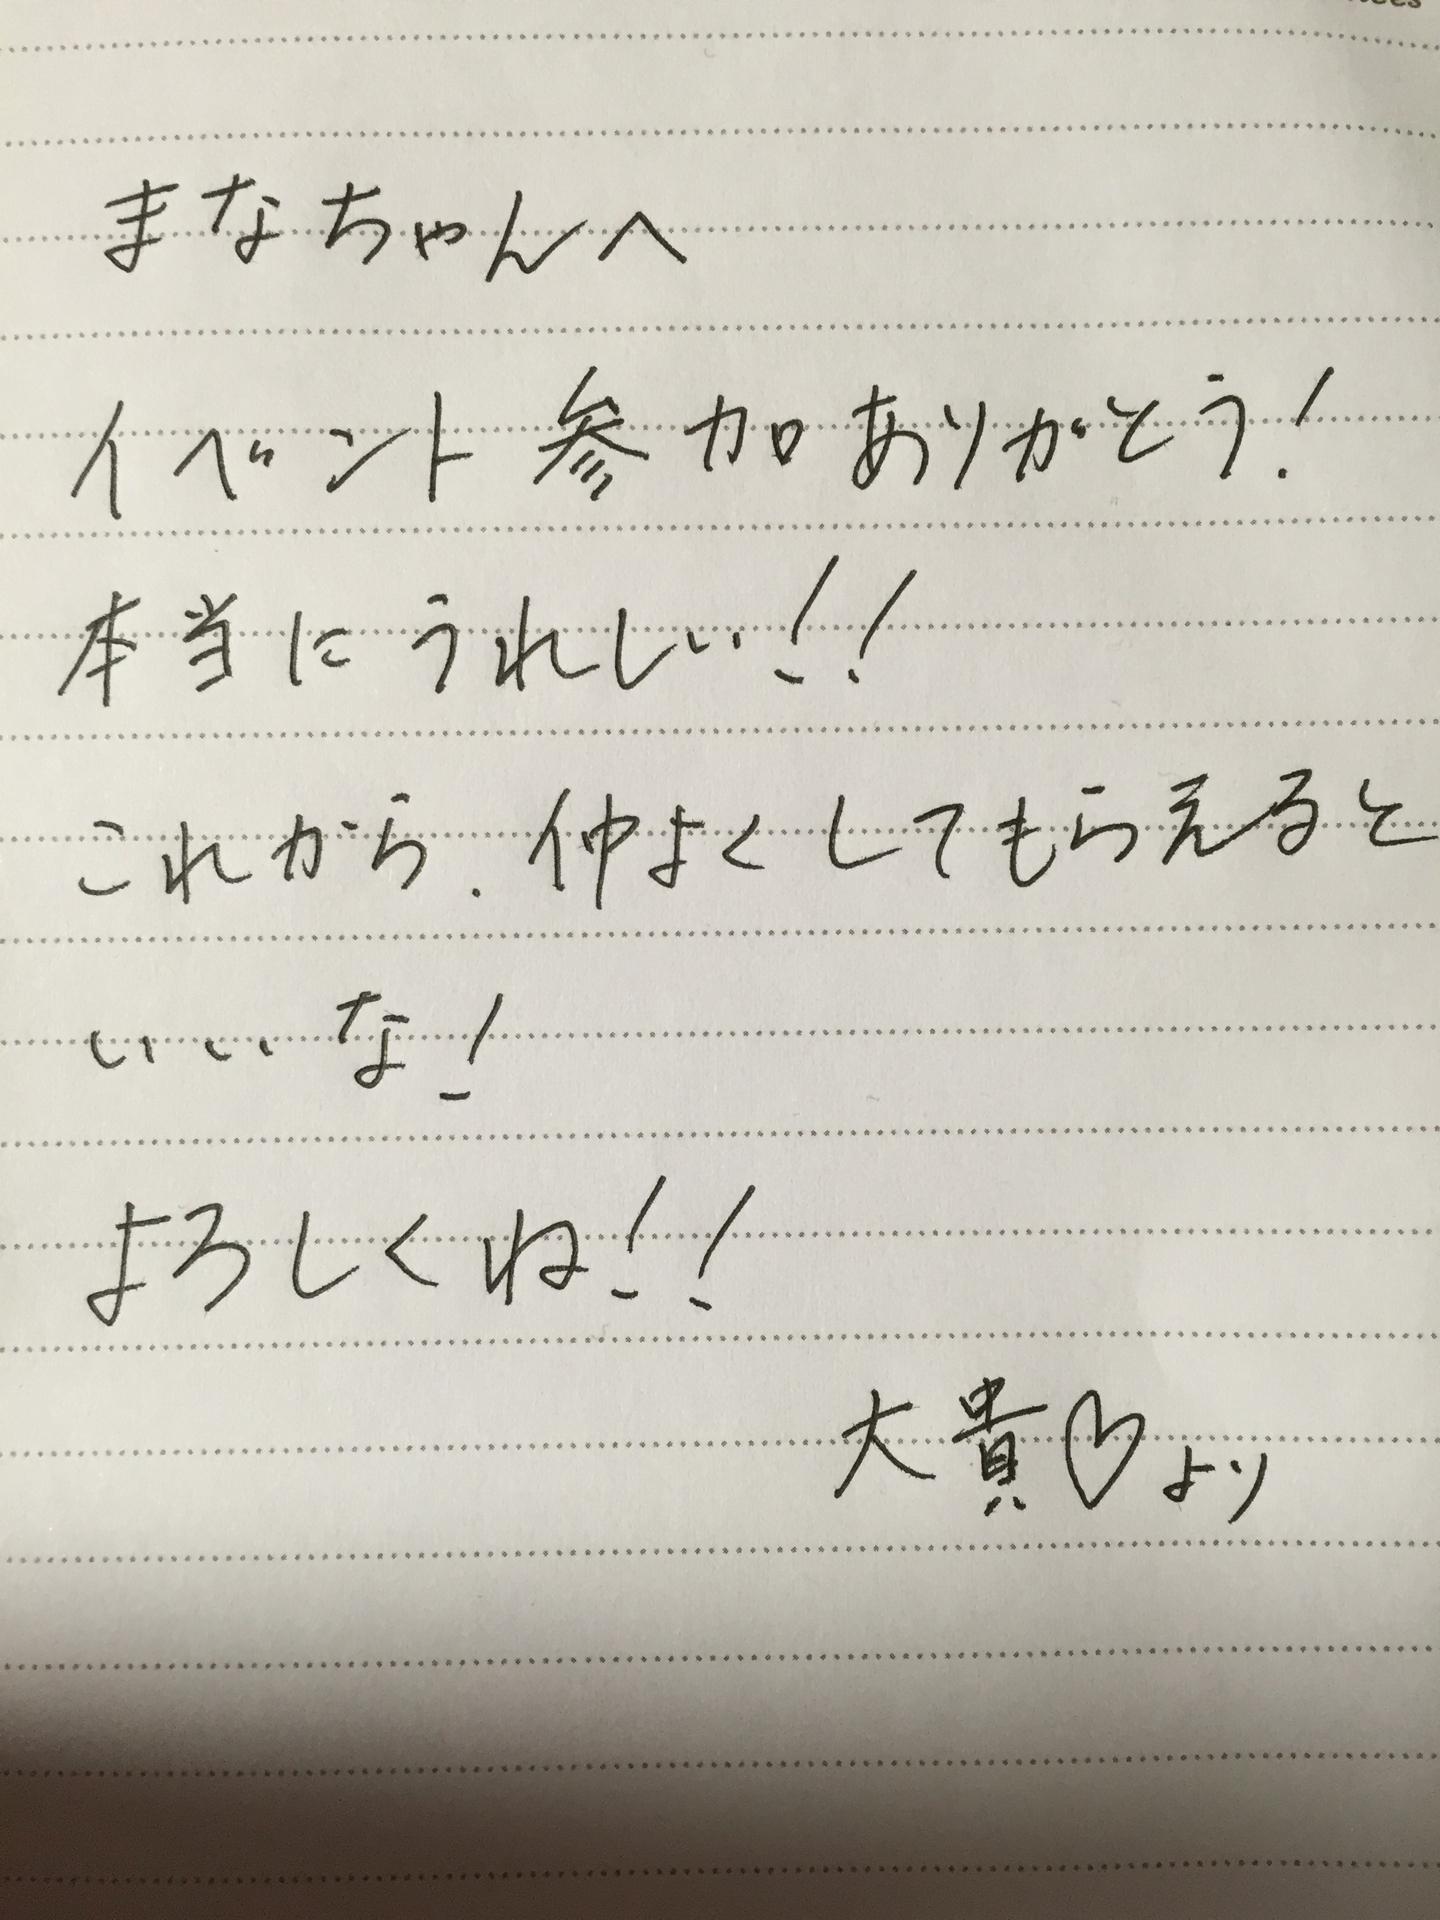 まなちゃんへ
イベント参加ありがとう!
本当にうれしい!!
これから、仲よくしてもらえると
いいな!
よろしくね!!
大貴♡より